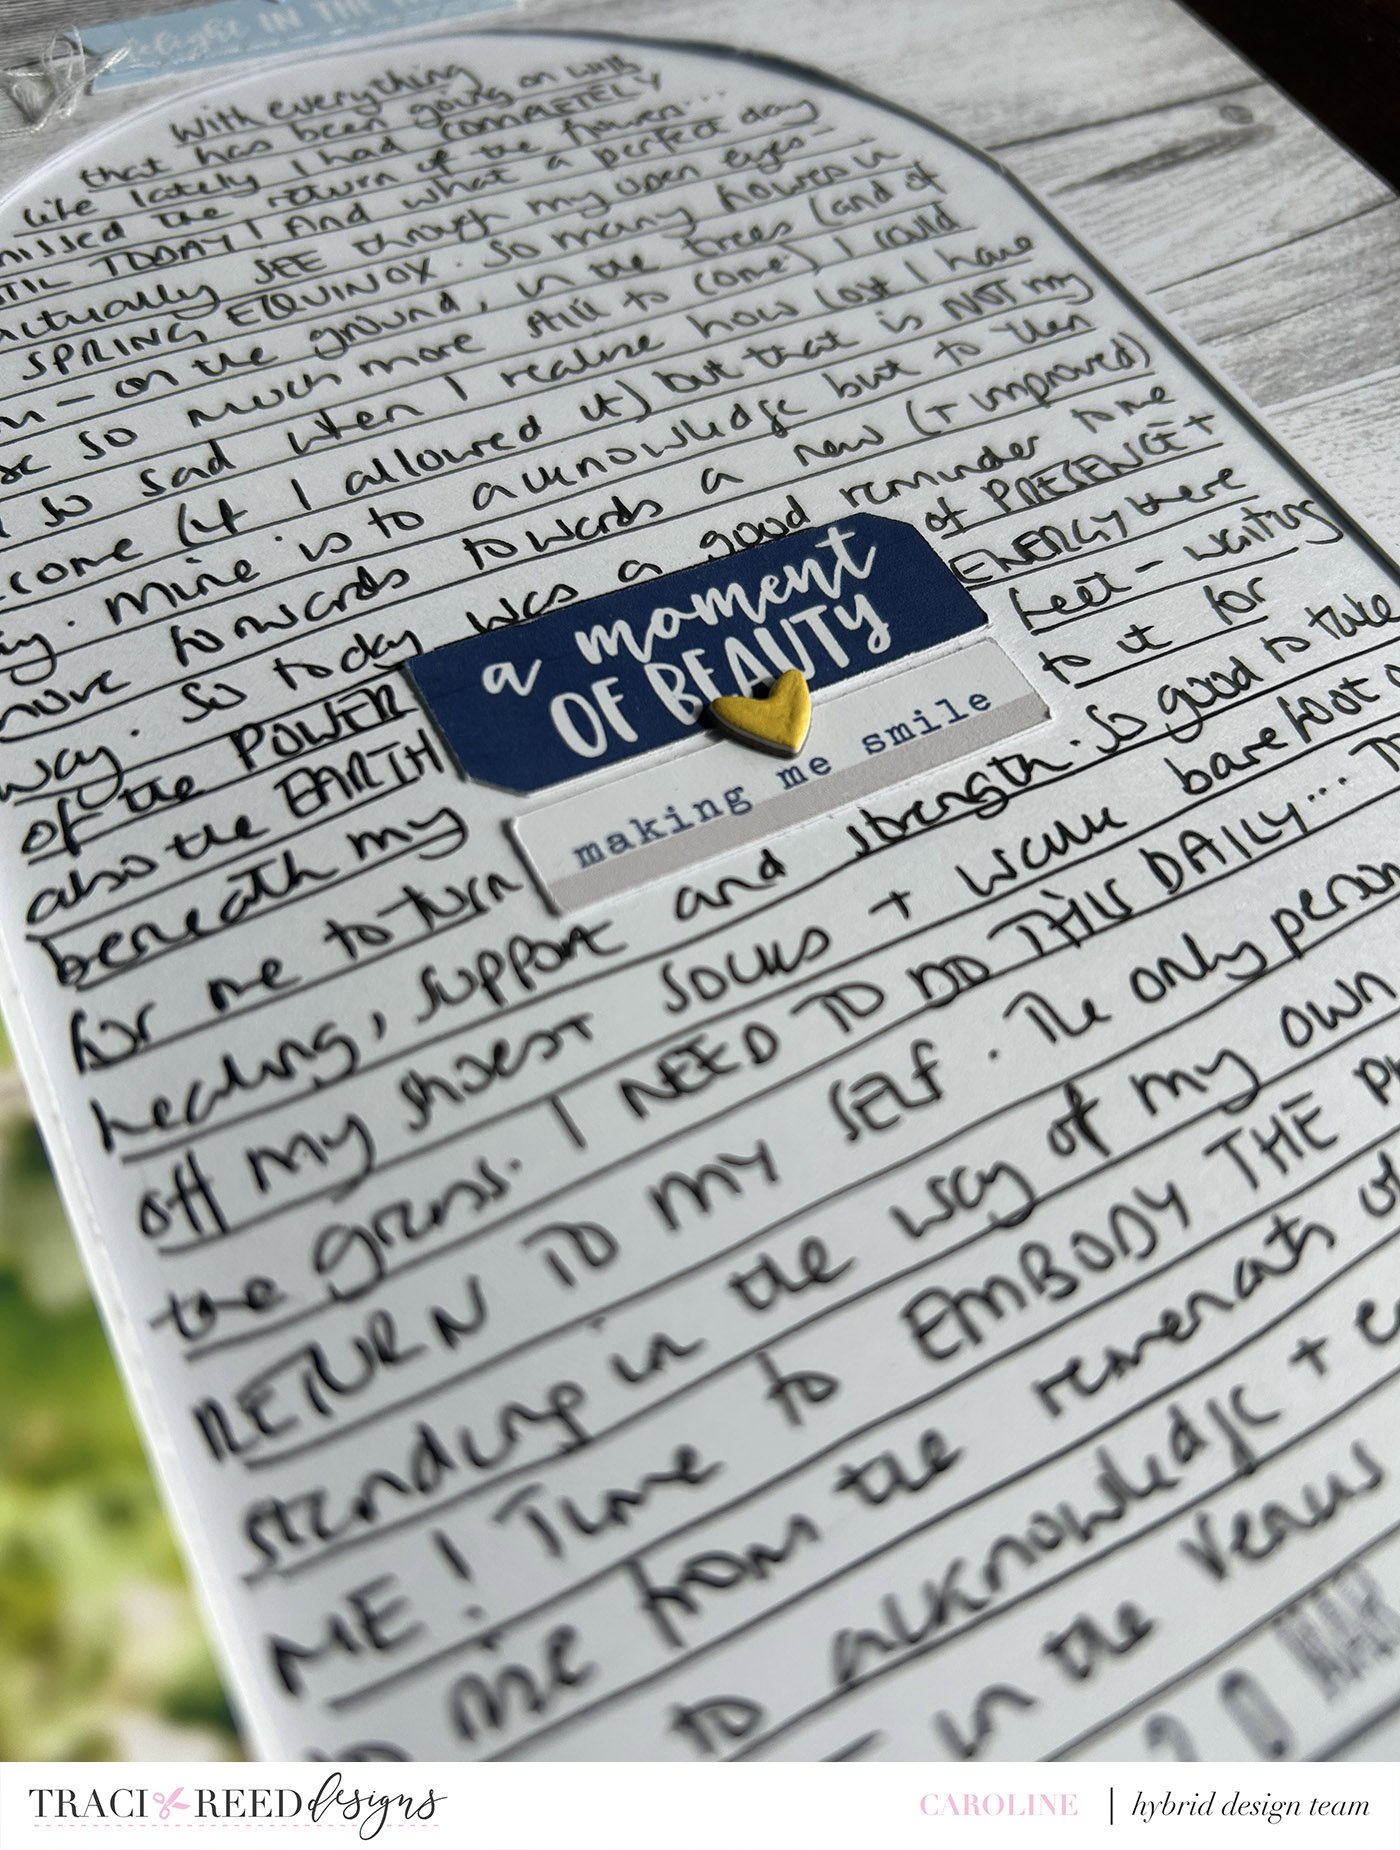 delight IN THE
With everything
that has been going on with
life lately I had COMPLETELY
missed the return of the flowers...
TIL TODAY! And what a perfect day
actually SEE through my open eyes -
SPRING EQUINOX. So many flowers in
- on the ground, in the trees (and of
so much more still to come) I could
so sad when I realise how lost I have
come (if I allowed it) but that is NOT my
. Mine is to acknowledge but to then
move forwards towards a new (+ improved)
way. So today was a good reminder to me
of the POWER of PRESENCE +
also the EARTH ENERGY there
beneath my feet - waiting
for me to turn to it for
healing, support and strength. So good to take
off my shoes + socks + walk barefoot
the grass. I NEED TO DO THIS DAILY...
RETURN TO MY SELF. The only person
standing in the way of my own
ME! Time to EMBODY THE
me from the
to acknowledge +
- in the
20 MAR
a moment
OF BEAUTY
making me smile
TRACI REED designs
CAROLINE | hybrid design team